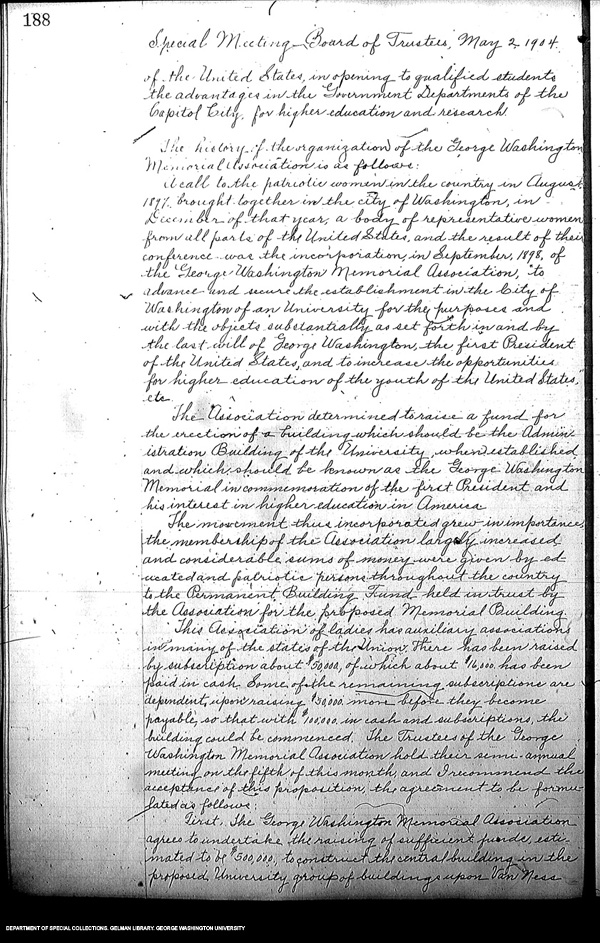 188
Special Meeting Board of Trustees, May 2, 1904.
of the United States, in opening to qualified students
the advantages in the Government Departments of the
Capitol City, for higher education and research.
The history of the organization of the George Washington
Memorial Association is as follows:
A call to the patriotic women in the country in August,
1897, brought together in the city of Washington, in
December of that year, a body of representative women
from all parts of the United States, and the result of their
conference was the incorporation, in September, 1898, of
the George Washington Memorial Association, "to
advance and secure the establishment in the City of
Washington of an University for the purposes and
with the objects substantially as set forth in and by
the last will of George Washington, the first President
of the United States, and to increase the opportunities
for higher education of the youth of the United States,"
etc.
The Association determined to raise a fund for
the erection of a building which should be the Admin-
istration Building of the University, when established
and which should be known as the George Washington
Memorial in commemoration of the first President and
his interest in higher education in America.
The movement thus incorporated grew in importance,
the membership of the Association largely increased
and considerable sums of money were given by ed-
ucated and patriotic persons throughout the country
to the Permanent Building Fund held in trust by
the Association for the proposed Memorial Building.
This Association of ladies has auxiliary associations
in many of the states of the Union. There has been raised
by subscription about $50,000, of which about $16,000 has been
paid in cash. Some of the remaining subscriptions are
dependent upon raising $50,000 more before they become
payable, so that with $100,000 in cash and subscriptions, the
building could be commenced. The Trustees of the George
Washington Memorial Association hold their semi-annual
meeting on the fifth of this month, and I recommend the
acceptance of this proposition, the agreement to be formu-
lated as follows:
First. The George Washington Memorial Association
agrees to undertake the raising of sufficient funds, esti-
mated to be $500,000, to construct the central building in the
proposed University group of buildings upon Van Ness
DEPARTMENT OF SPECIAL COLLECTIONS. GELMAN LIBRARY. GEORGE WASHINGTON UNIVERSITY